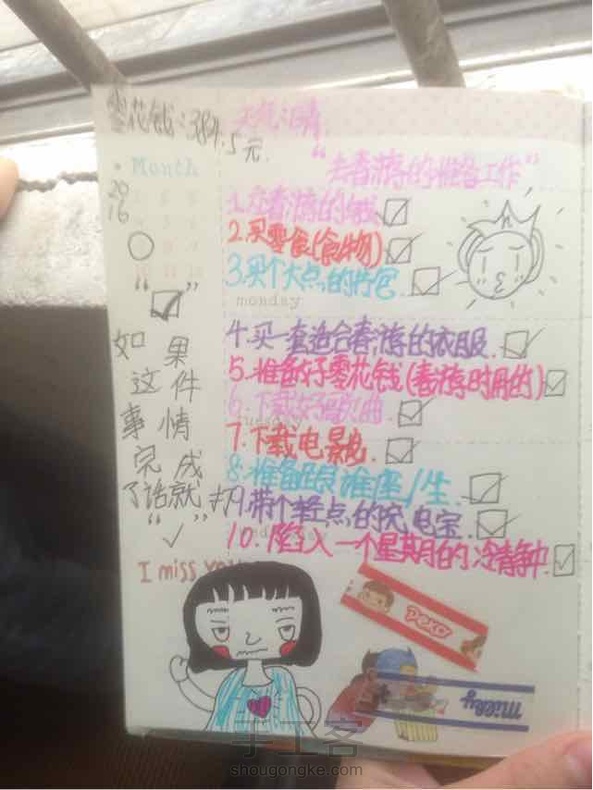 零花钱:384.5元.
天气:晴.
"去春游的准备工作"
Month
2016
1.交春游的钱
2.买零食(食物)
3.买个大点的背包.
monday
4.买一套适合春游的衣服.
5.准备好零花钱(春游时用的)
6.下载好歌曲.
7.下载电影.
8.准备跟谁座/生.
9.带个轻点的充电宝.
10.陷入一个星期的冷静中.
"☑"
如果
这件
事情
完成
了话就打
"✓"
I miss you
Peko
milky
手工客
shougongke.com